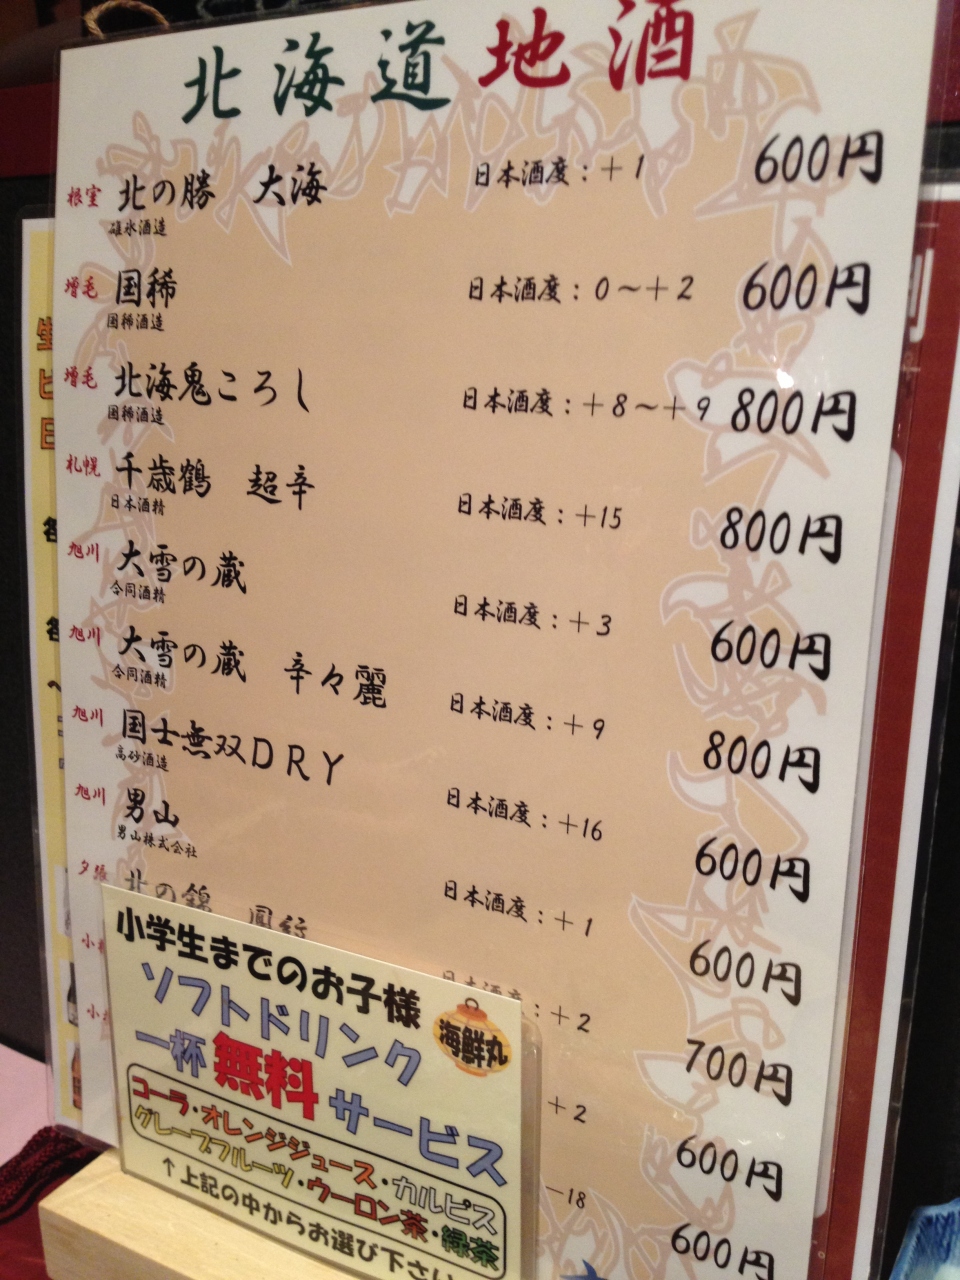 北海道地酒
根室 北の勝 大海 日本酒度：＋1 600円
碓氷酒造
増毛 国稀 日本酒度：0〜＋2 600円
国稀酒造
増毛 北海鬼ころし 日本酒度：＋8〜＋9 800円
国稀酒造
札幌 千歳鶴 超辛 日本酒度：＋15 800円
日本酒精
旭川 大雪の蔵 日本酒度：＋3 600円
合同酒精
旭川 大雪の蔵 辛々麗 日本酒度：＋9 800円
合同酒精
旭川 国士無双DRY 日本酒度：＋16 600円
高砂酒造
旭川 男山 日本酒度：＋1 600円
男山株式会社
夕張 北の錦 ：＋2 700円
小 ＋2 600円
小 −18 600円
小学生までのお子様
ソフトドリンク
海鮮丸
一杯無料サービス
コーラ・オレンジジュース・カルピス
グレープフルーツ・ウーロン茶・緑茶
↑上記の中からお選び下さい